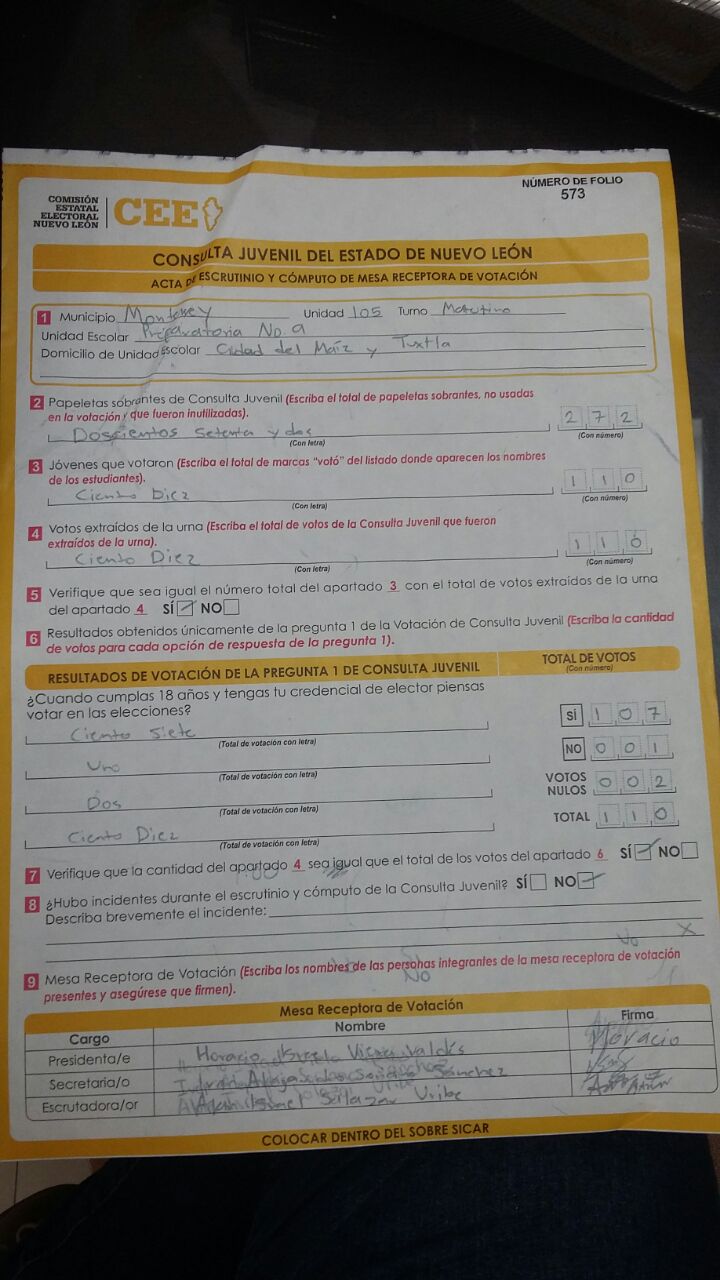 COMISIÓN
ESTATAL
ELECTORAL
NUEVO LEÓN
CEE
NÚMERO DE FOLIO
573
CONSULTA JUVENIL DEL ESTADO DE NUEVO LEÓN
ACTA DE ESCRUTINIO Y CÓMPUTO DE MESA RECEPTORA DE VOTACIÓN
1 Municipio Monterrey Unidad 105 Turno Matutino
Unidad Escolar Preparatoria No. 9
Domicilio de Unidad Escolar Ciudad del Maíz y Tuxtla
2 Papeletas sobrantes de Consulta Juvenil (Escriba el total de papeletas sobrantes, no usadas
en la votación y que fueron inutilizadas).
Doscientos setenta y dos 272
(Con letra) (Con número)
3 Jóvenes que votaron (Escriba el total de marcas "votó" del listado donde aparecen los nombres
de los estudiantes).
Ciento Diez 110
(Con letra) (Con número)
4 Votos extraídos de la urna (Escriba el total de votos de la Consulta Juvenil que fueron
extraídos de la urna).
Ciento Diez 110
(Con letra) (Con número)
5 Verifique que sea igual el número total del apartado 3 con el total de votos extraídos de la urna
del apartado 4 SÍ NO
6 Resultados obtenidos únicamente de la pregunta 1 de la Votación de Consulta Juvenil (Escriba la cantidad
de votos para cada opción de respuesta de la pregunta 1).
RESULTADOS DE VOTACIÓN DE LA PREGUNTA 1 DE CONSULTA JUVENIL TOTAL DE VOTOS
(Con número)
¿Cuando cumplas 18 años y tengas tu credencial de elector piensas
votar en las elecciones?
Ciento Siete SÍ 107
(Total de votación con letra)
Uno NO 001
(Total de votación con letra)
Dos VOTOS NULOS 002
(Total de votación con letra)
Ciento Diez TOTAL 110
(Total de votación con letra)
7 Verifique que la cantidad del apartado 4 sea igual que el total de los votos del apartado 6 SÍ NO
8 ¿Hubo incidentes durante el escrutinio y cómputo de la Consulta Juvenil? SÍ NO
Describa brevemente el incidente:
X
No
9 Mesa Receptora de Votación (Escriba los nombres de las personas integrantes de la mesa receptora de votación
No
presentes y asegúrese que firmen).
Mesa Receptora de Votación
Cargo Nombre Firma
Presidenta/e Horacio Valdés Horacio
Secretaria/o Sánchez
Escrutadora/or Salazar Uribe
COLOCAR DENTRO DEL SOBRE SICAR